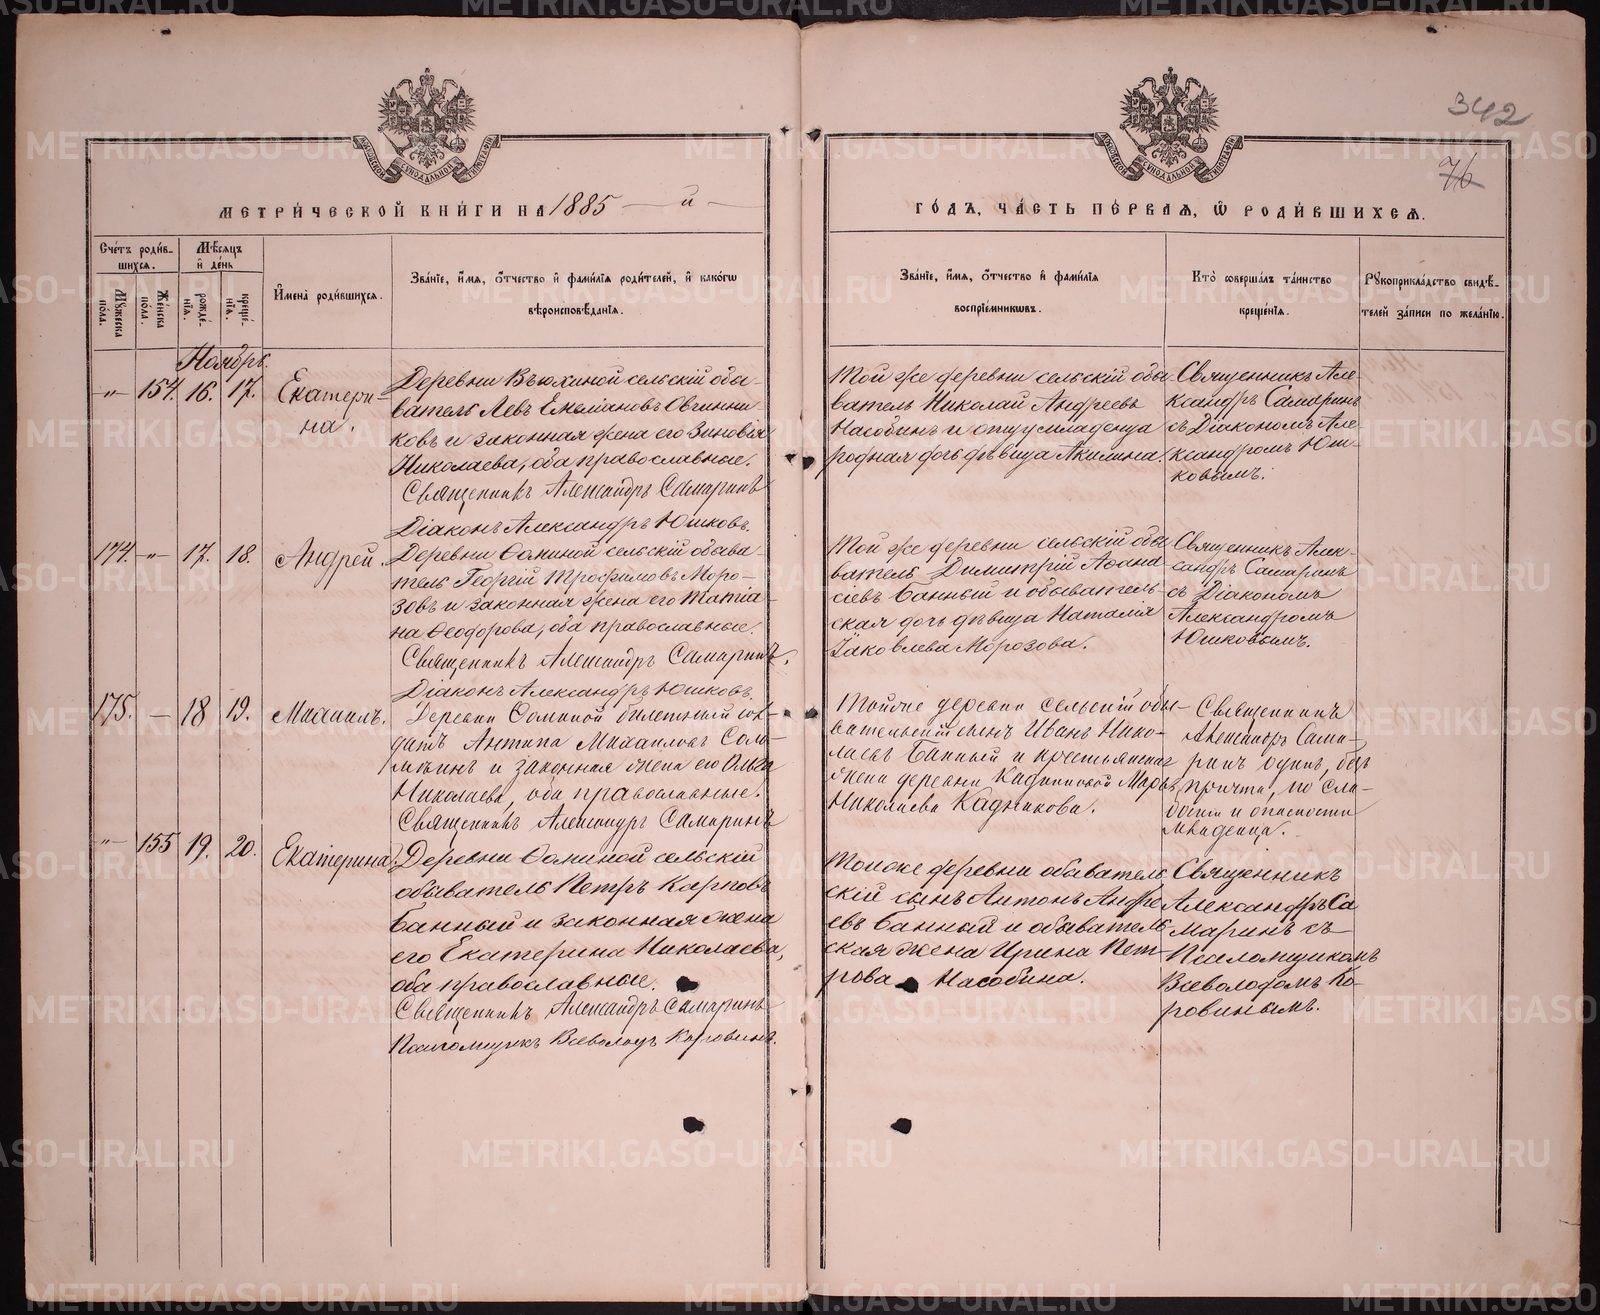 342
76
МЕТРИ́ЧЕСКОЙ КНИ́ГИ НА 1885 — й —
ГО́ДЪ, ЧА́СТЬ ПЕ́РВАЯ, Ѿ РОДИ́ВШИХСЯ.
Сче́тъ роди́в-
шихся.
Мѣ́сяцъ
и де́нь
Му́жеска по́ла.
Же́нска по́ла.
рожде́нїя.
креще́нїя.
И҆мена̀ роди́вшихся.
Зва́нїе, и҆́мя, о҆́тчество и҆ фами́лїя роди́телей, и҆ како́гѡ
вѣроисповѣ́данїя.
Зва́нїе, и҆́мя, о҆́тчество и҆ фами́лїя
воспрїе́мникѡвъ.
Кто̀ соверша́лъ та́инство
креще́нїя.
Рꙋкоприкла́дство свидѣ́-
телей за́писи по жела́нїю.
Ноябрь.
-"- 154. 16. 17. Екатери-
на.
Деревни Вьюхиной сельскій обы-
ватель Левъ Емеліановъ Овчинни-
ковъ и законная жена его Зиновія
Николаева, оба православные.
Священникъ Александръ Самаринъ
Діаконъ Александръ Юшковъ.
Той же деревни сельскій обы-
ватель Николай Андреевъ
Насобинъ и отцу младенца
родная дочь дѣвица Акилина.
Священникъ Але-
ксандръ Самаринъ
съ Діакономъ Але-
ксандромъ Юш-
ковымъ.
174. -"- 17. 18. Андрей.
Деревни Ѳоминой сельскій обыва-
тель Георгій Трофимовъ Моро-
зовъ и законная жена его Татіа-
на Ѳеодорова, оба православные.
Священникъ Александръ Самаринъ.
Діаконъ Александръ Юшковъ.
Той же деревни сельскій обы
ватель Димитрій Аѳана
сіевъ Банный и обыватель-
ская дочь дѣвица Наталія
Іаковлева Морозова.
Священникъ Алек-
сандръ Самаринъ
съ Діакономъ
Александромъ
Юшковымъ.
175. — 18 19. Михаилъ.
Деревни Ѳоминой билетный сол-
датъ Антипа Михаиловъ Соло-
мѣинъ и законная жена его Ольга
Николаева, оба православные.
Священникъ Александръ Самаринъ
Тойже деревни сельскій обы-
вательскій сынъ Иванъ Нико-
лаевъ Банный и крестьянская
жена деревни Кадниковой Марѳа
Николаева Кадникова.
Священникъ
Александръ Сама-
ринъ одинъ, безъ
причта, по сла-
бости и опасности
младенца.
-"- 155 19. 20. Екатерина.
Деревни Ѳоминой сельскій
обыватель Петръ Карповъ
Банный и законная жена
его Екатерина Николаева,
оба православные.
Священникъ Александръ Самаринъ
Псаломщикъ Всеволодъ Коровинъ.
Тойже деревни обыватель
скій сынъ Антонъ Андре
евъ Банный и обыватель
ская жена Ирина Пет-
рова Насобина.
Священникъ
Александръ Са
маринъ съ
Псаломщикомъ
Всеволодомъ Ко-
ровинымъ.
METRIKI.GASO-URAL.RU